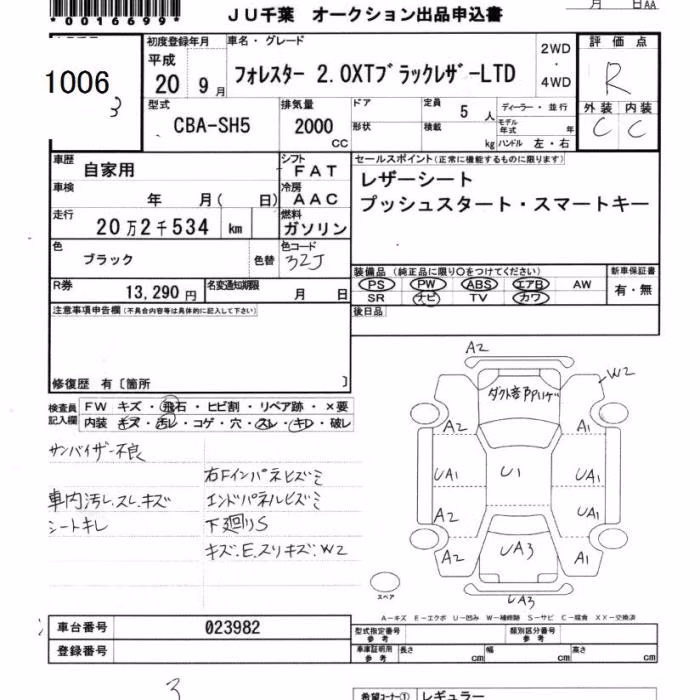 *0016699*
月 日AA
JU千葉 オークション出品申込書
1006
3
初度登録年月
平成
20 9月
車名・グレード
フォレスター 2.0XTブラックレザーLTD
2WD
・
4WD
評価点
R
外装 内装
C C
型式
CBA-SH5
排気量
2000
CC
ドア
形状
定員
5 人
積載
kg
ディーラー・並行
モデル年式 年
ハンドル 左・右
車歴
自家用
シフト
FAT
車検
年 月( 日)
冷房
AAC
走行
20万2千534 km
燃料
ガソリン
色
ブラック
色替
色コード
32J
R券
13,290円
名変通知期限
月 日
セールスポイント(正常に機能するものに限ります)
レザーシート
プッシュスタート・スマートキー
装備品 (純正品に限り○をつけてください)
PS PW ABS エアB AW
SR ナビ TV カワ
新車保証書
有・無
後日品
注意事項申告欄(不具合内容等は具体的に記入して下さい)
修復歴 有〔箇所 〕
検査員
記入欄
FW キズ・飛石・ヒビ割・リペア跡・×要
内装 キズ・汚レ・コゲ・穴・スレ・キレ・破レ
サンバイザー不良
右Fインパネヒズミ
車内汚レ.スレ.キズ
エンドパネルヒズミ
シートキレ
下廻りS
キズ.E.スリキズ.W2
A2
W2
A2 A1
UA1 U1 UA1
A2 UA1
A2 UA3 A1
UA3
スペア
A-キズ E-エクボ U-凹み W-補修跡 S-サビ C-腐食 XX-交換済
車台番号
023982
登録番号
型式指定番号
参考
類別区分番号
参考
車庫証明用
参考
長さ cm
幅 cm
高さ cm
3
希望コーナー① レギュラー